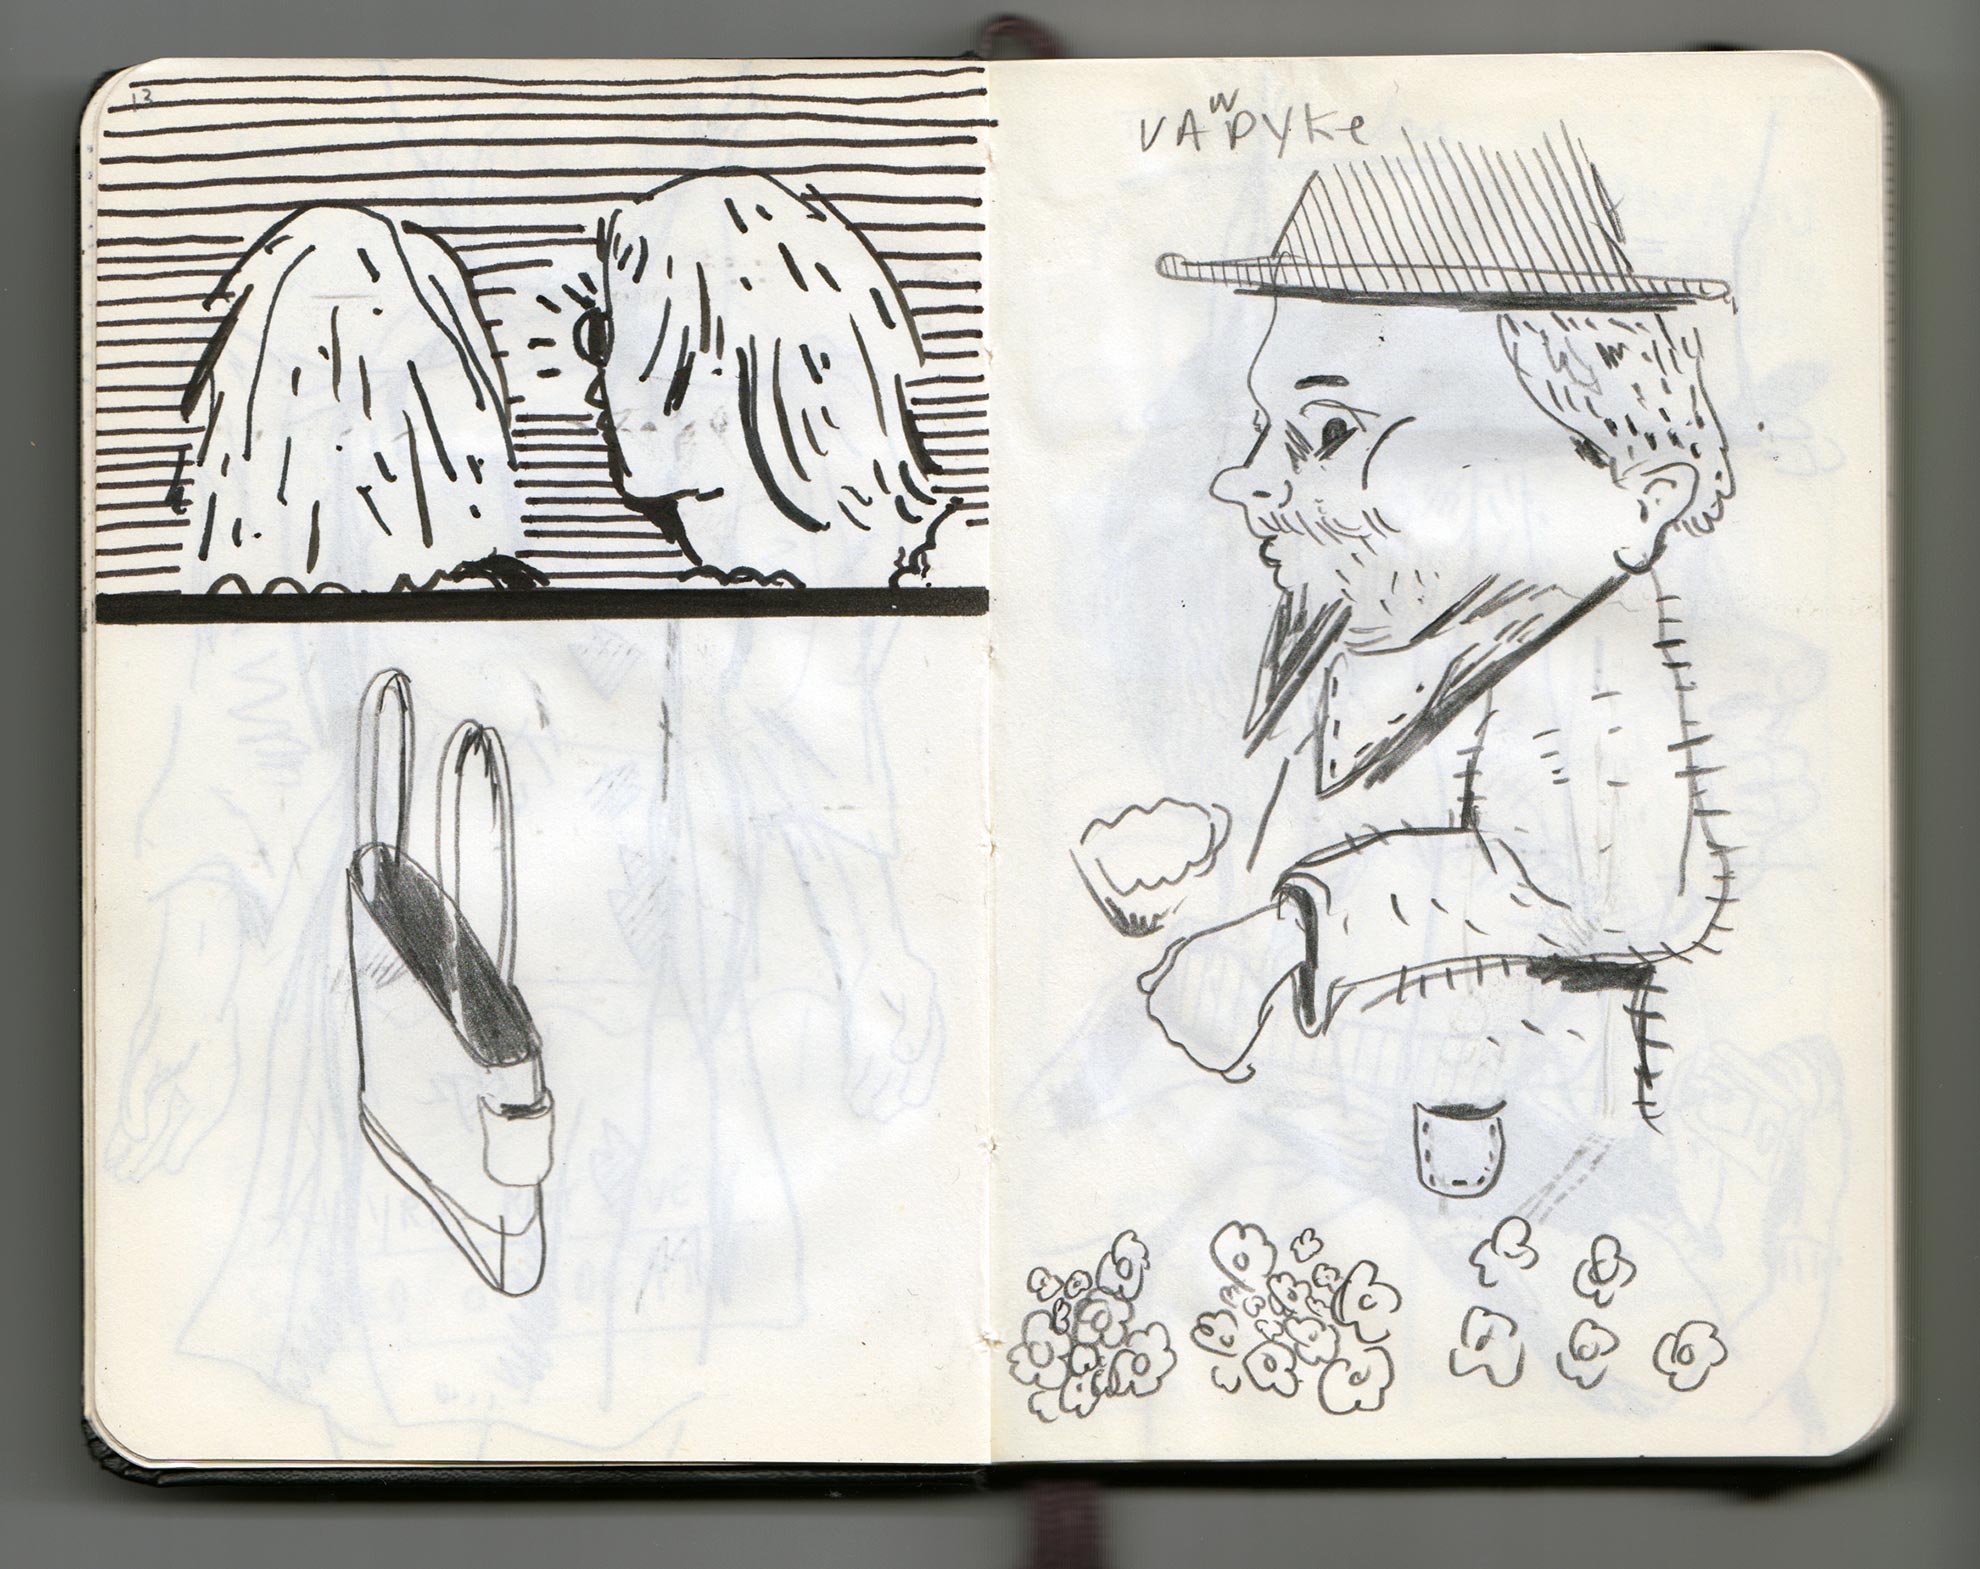 13
VANDYKe